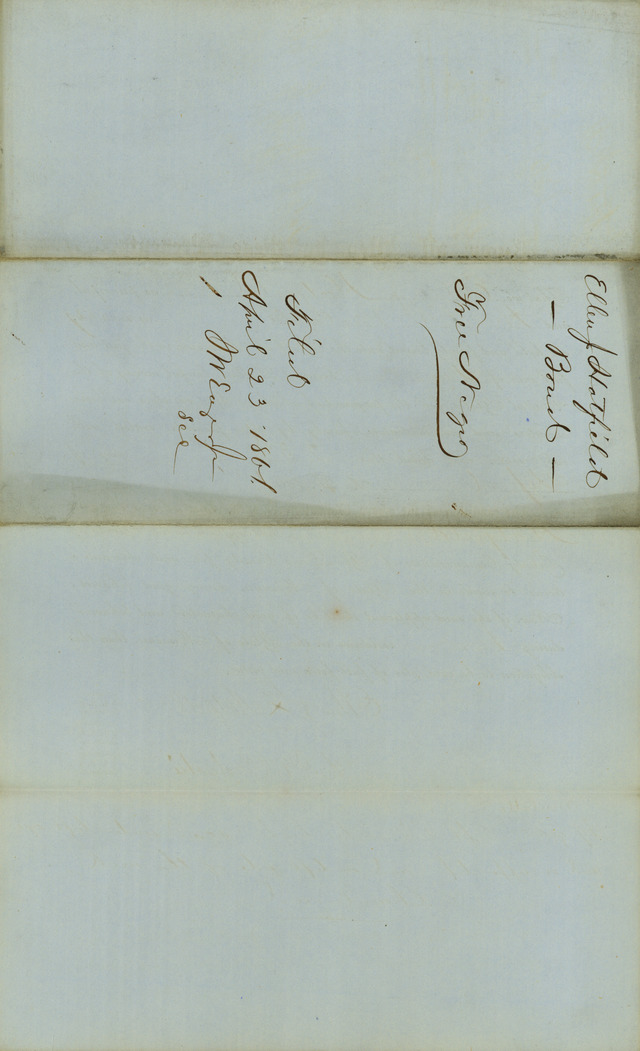 Ellen J Hatfield
— Bond —
Free Negro
Filed
April 23 1861